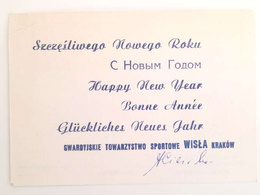 Szczęśliwego Nowego Roku
С Новым Годом
Happy New Year
Bonne Année
Glückliches Neues Jahr
GWARDYJSKIE TOWARZYSTWO SPORTOWE WISŁA KRAKÓW